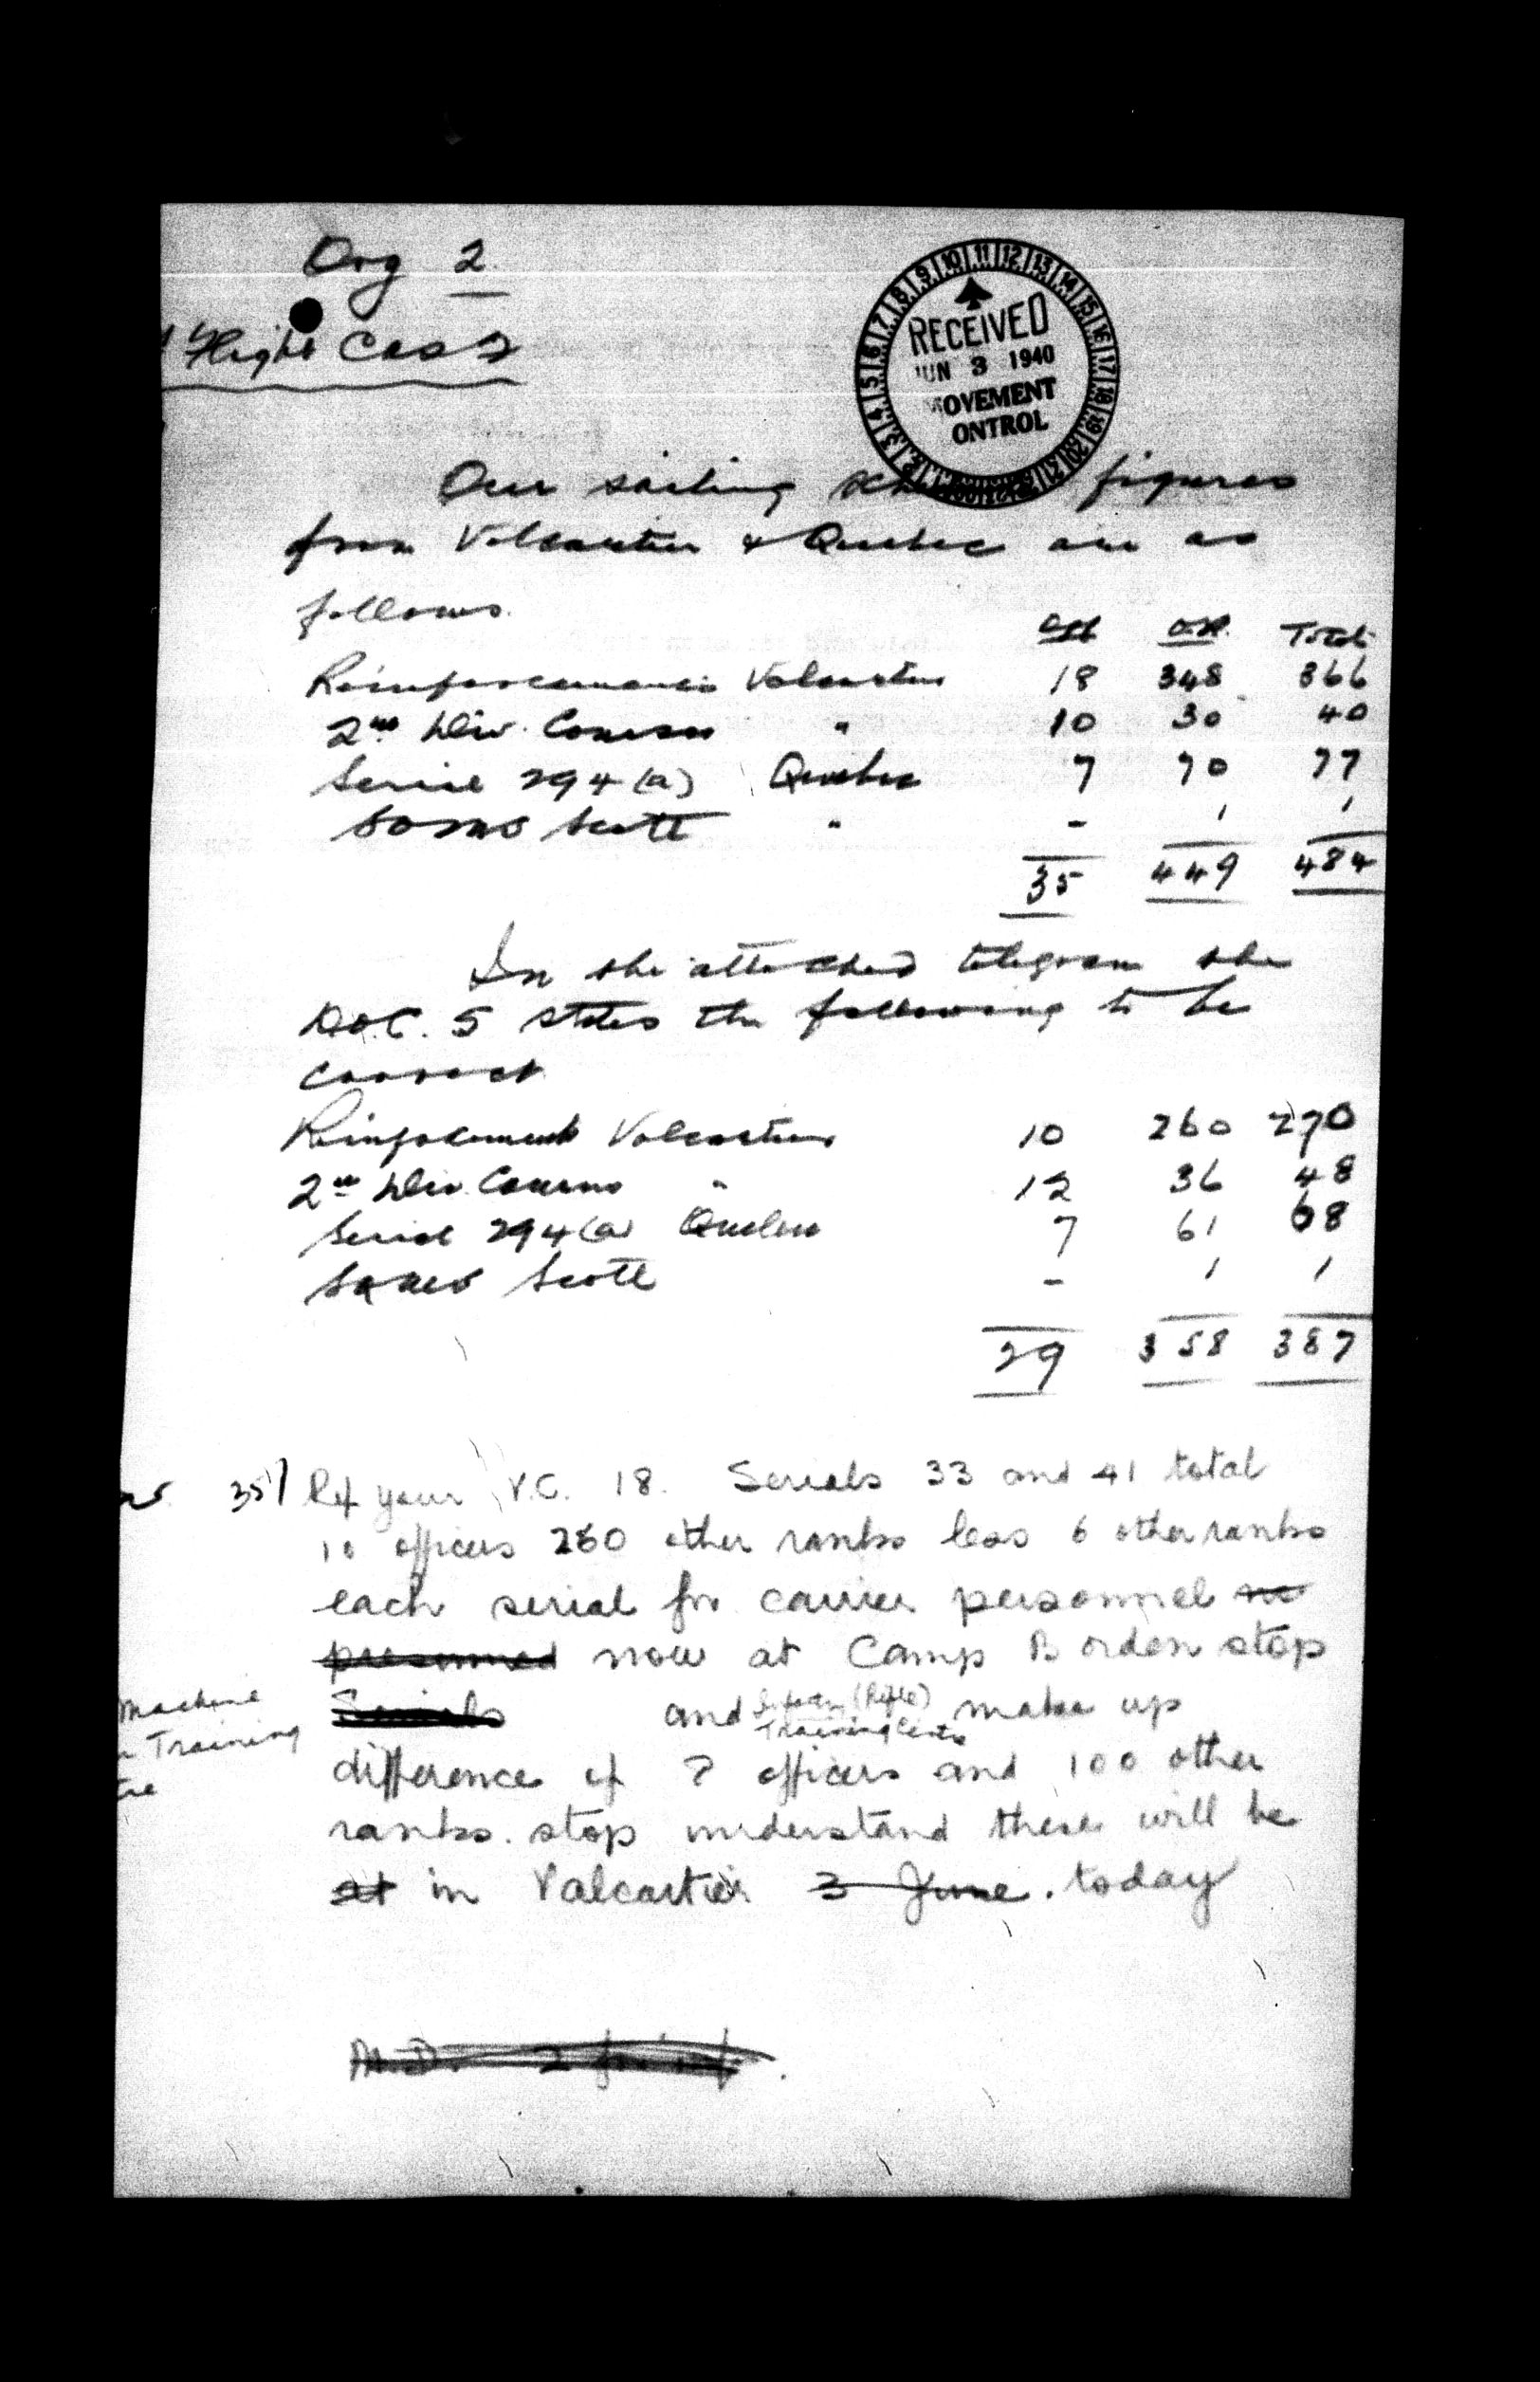 Org 2.
Flight Cas 2
RECEIVED
JUN 3 1940
MOVEMENT
ONTROL
Our sailing figures
from Valcartier & Quebec are as
follows.
Off O.R. Total
Reinforcements Valcartier 18 348 366
2nd Div. Courses " 10 30 40
Serial 294 (a) Quebec 7 70 77
Scott " - 1 1
35 449 484
In the attached telegram the
D.O.C. 5 states the following to be
correct
Reinforcement Valcartier 10 260 270
2nd Div. Courses " 12 36 48
Serial 294 (a) Quebec 7 61 68
Scott - 1 1
29 358 387
357 Ref your V.C. 18. Serials 33 and 41 total
10 officers 260 other ranks less 6 other ranks
each serial for carrier personnel
now at Camp Borden stop
Machine
Training
Serials and Infantry (Rifle) Training Centre make up
difference of ? officers and 100 other
ranks. stop understand these will be
at in Valcartier 3 June. today
M.D. 2